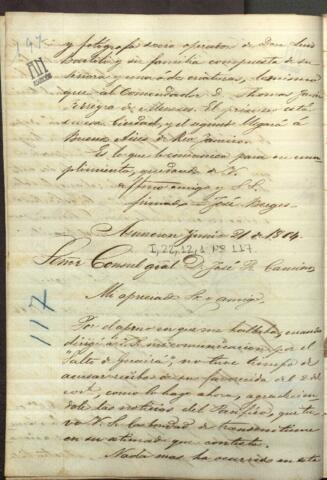 197
y fotógrafo socio operator de Don Luis
Bartoli y su familia compuesta de su
señora y una o dos criaturas, lo mismo
que al Comendador D. Thomas
de Meneses. El primero está
en esa Ciudad, y el segundo llegará á
Buenos Aires de Rio Janeiro.
Es lo que le comunico para su cum-
plimiento, quedando de V.
affmo amigo y S. S.
firmado José Berges
Asuncion Junio 21 de 1864.
I,22,12,1 Nº 117
Señor Consul gral D. José R. Caminos
Mi apreciado Sr. y amigo.
117
Por el apuro en que me hallaba, cuando
dirigí á V. mi comunicacion por el
"Salto de Guairá", no tuve tiempo de
acusar recibo de su favorecida del 2 de
cort., como lo hago ahora, agradecien-
dole las noticias del Pacífico, que tu-
vo V. la bondad de transmitirme
en su estimada que contesto.
Nada mas ha ocurrido en este